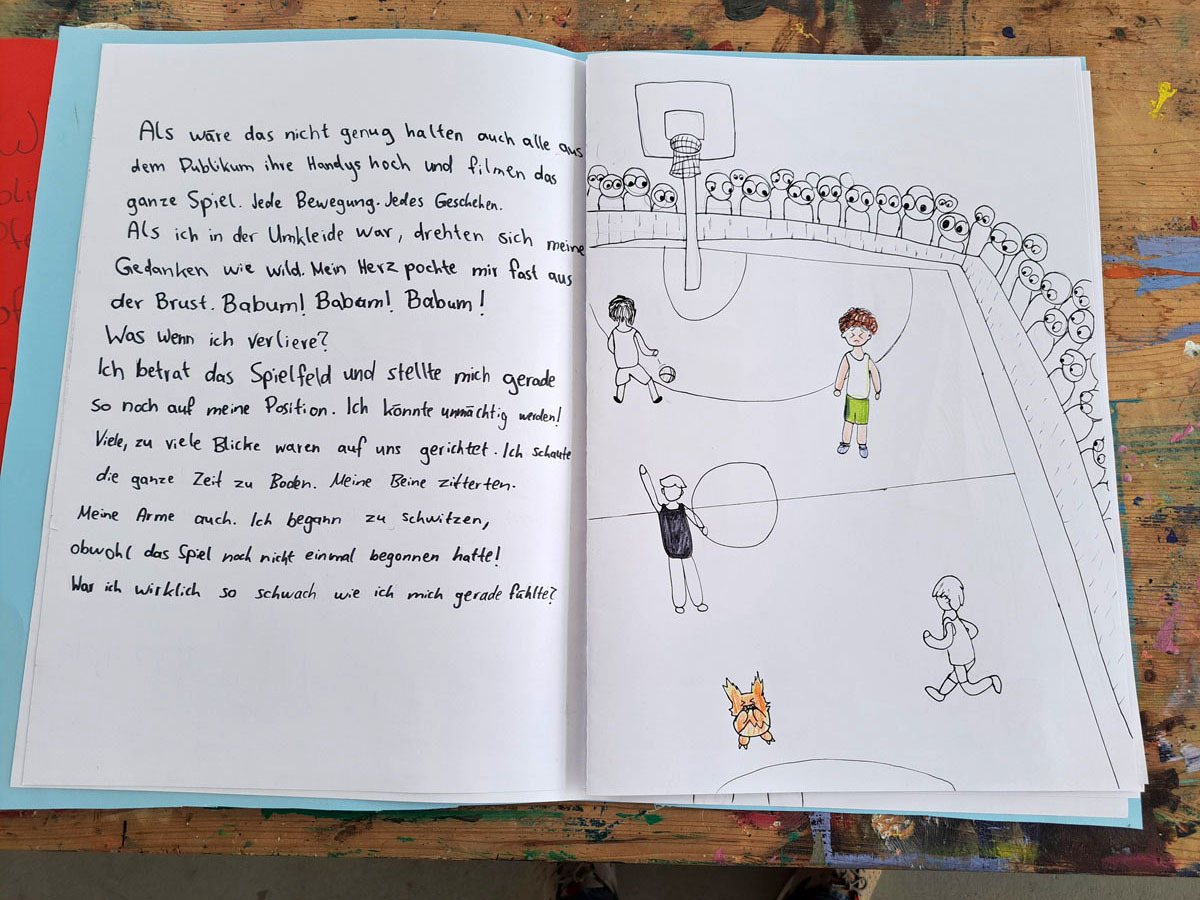 Als wäre das nicht genug halten auch alle aus
dem Publikum ihre Handys hoch und filmen das
ganze Spiel. Jede Bewegung. Jedes Geschehen.
Als ich in der Umkleide war, drehten sich meine
Gedanken wie wild. Mein Herz pochte mir fast aus
der Brust. Babum! Babum! Babum!
Was wenn ich verliere?
Ich betrat das Spielfeld und stellte mich gerade
so noch auf meine Position. Ich könnte unmächtig werden!
Viele, zu viele Blicke waren auf uns gerichtet. Ich schaute
die ganze Zeit zu Boden. Meine Beine zitterten.
Meine Arme auch. Ich begann zu schwitzen,
obwohl das Spiel noch nicht einmal begonnen hatte!
War ich wirklich so schwach wie ich mich gerade fühlte?